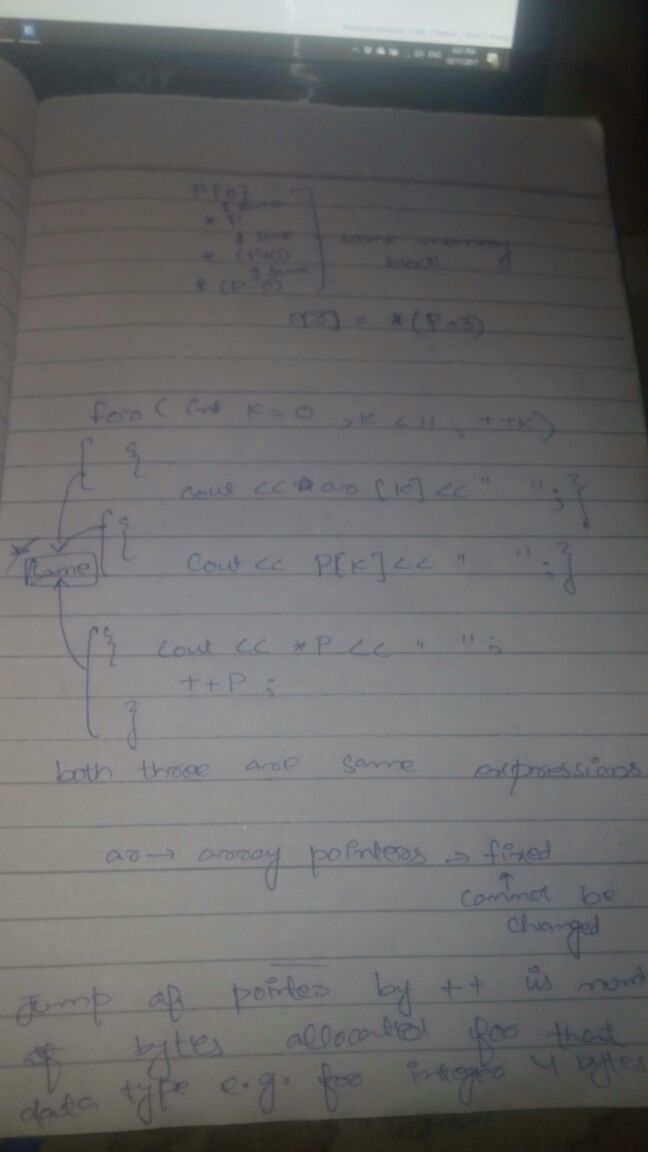 acer
P[0]
& same
* P
& same
* (P+0)
& same
* (P-0)
same memory
block
P[3] = *(P+3)
for ( int K=0 , K < 11 , ++K)
{
cout << ar [10] << " " ; }
{
same
Cout << P[K] << " " ; }
{ cout << *P << " " ;
++P ;
}
both three are same expressions
ar → array pointers → fixed
cannot be
changed
Jump of pointer by ++ is
of bytes allocated for that
data type e.g. for integer 4 bytes